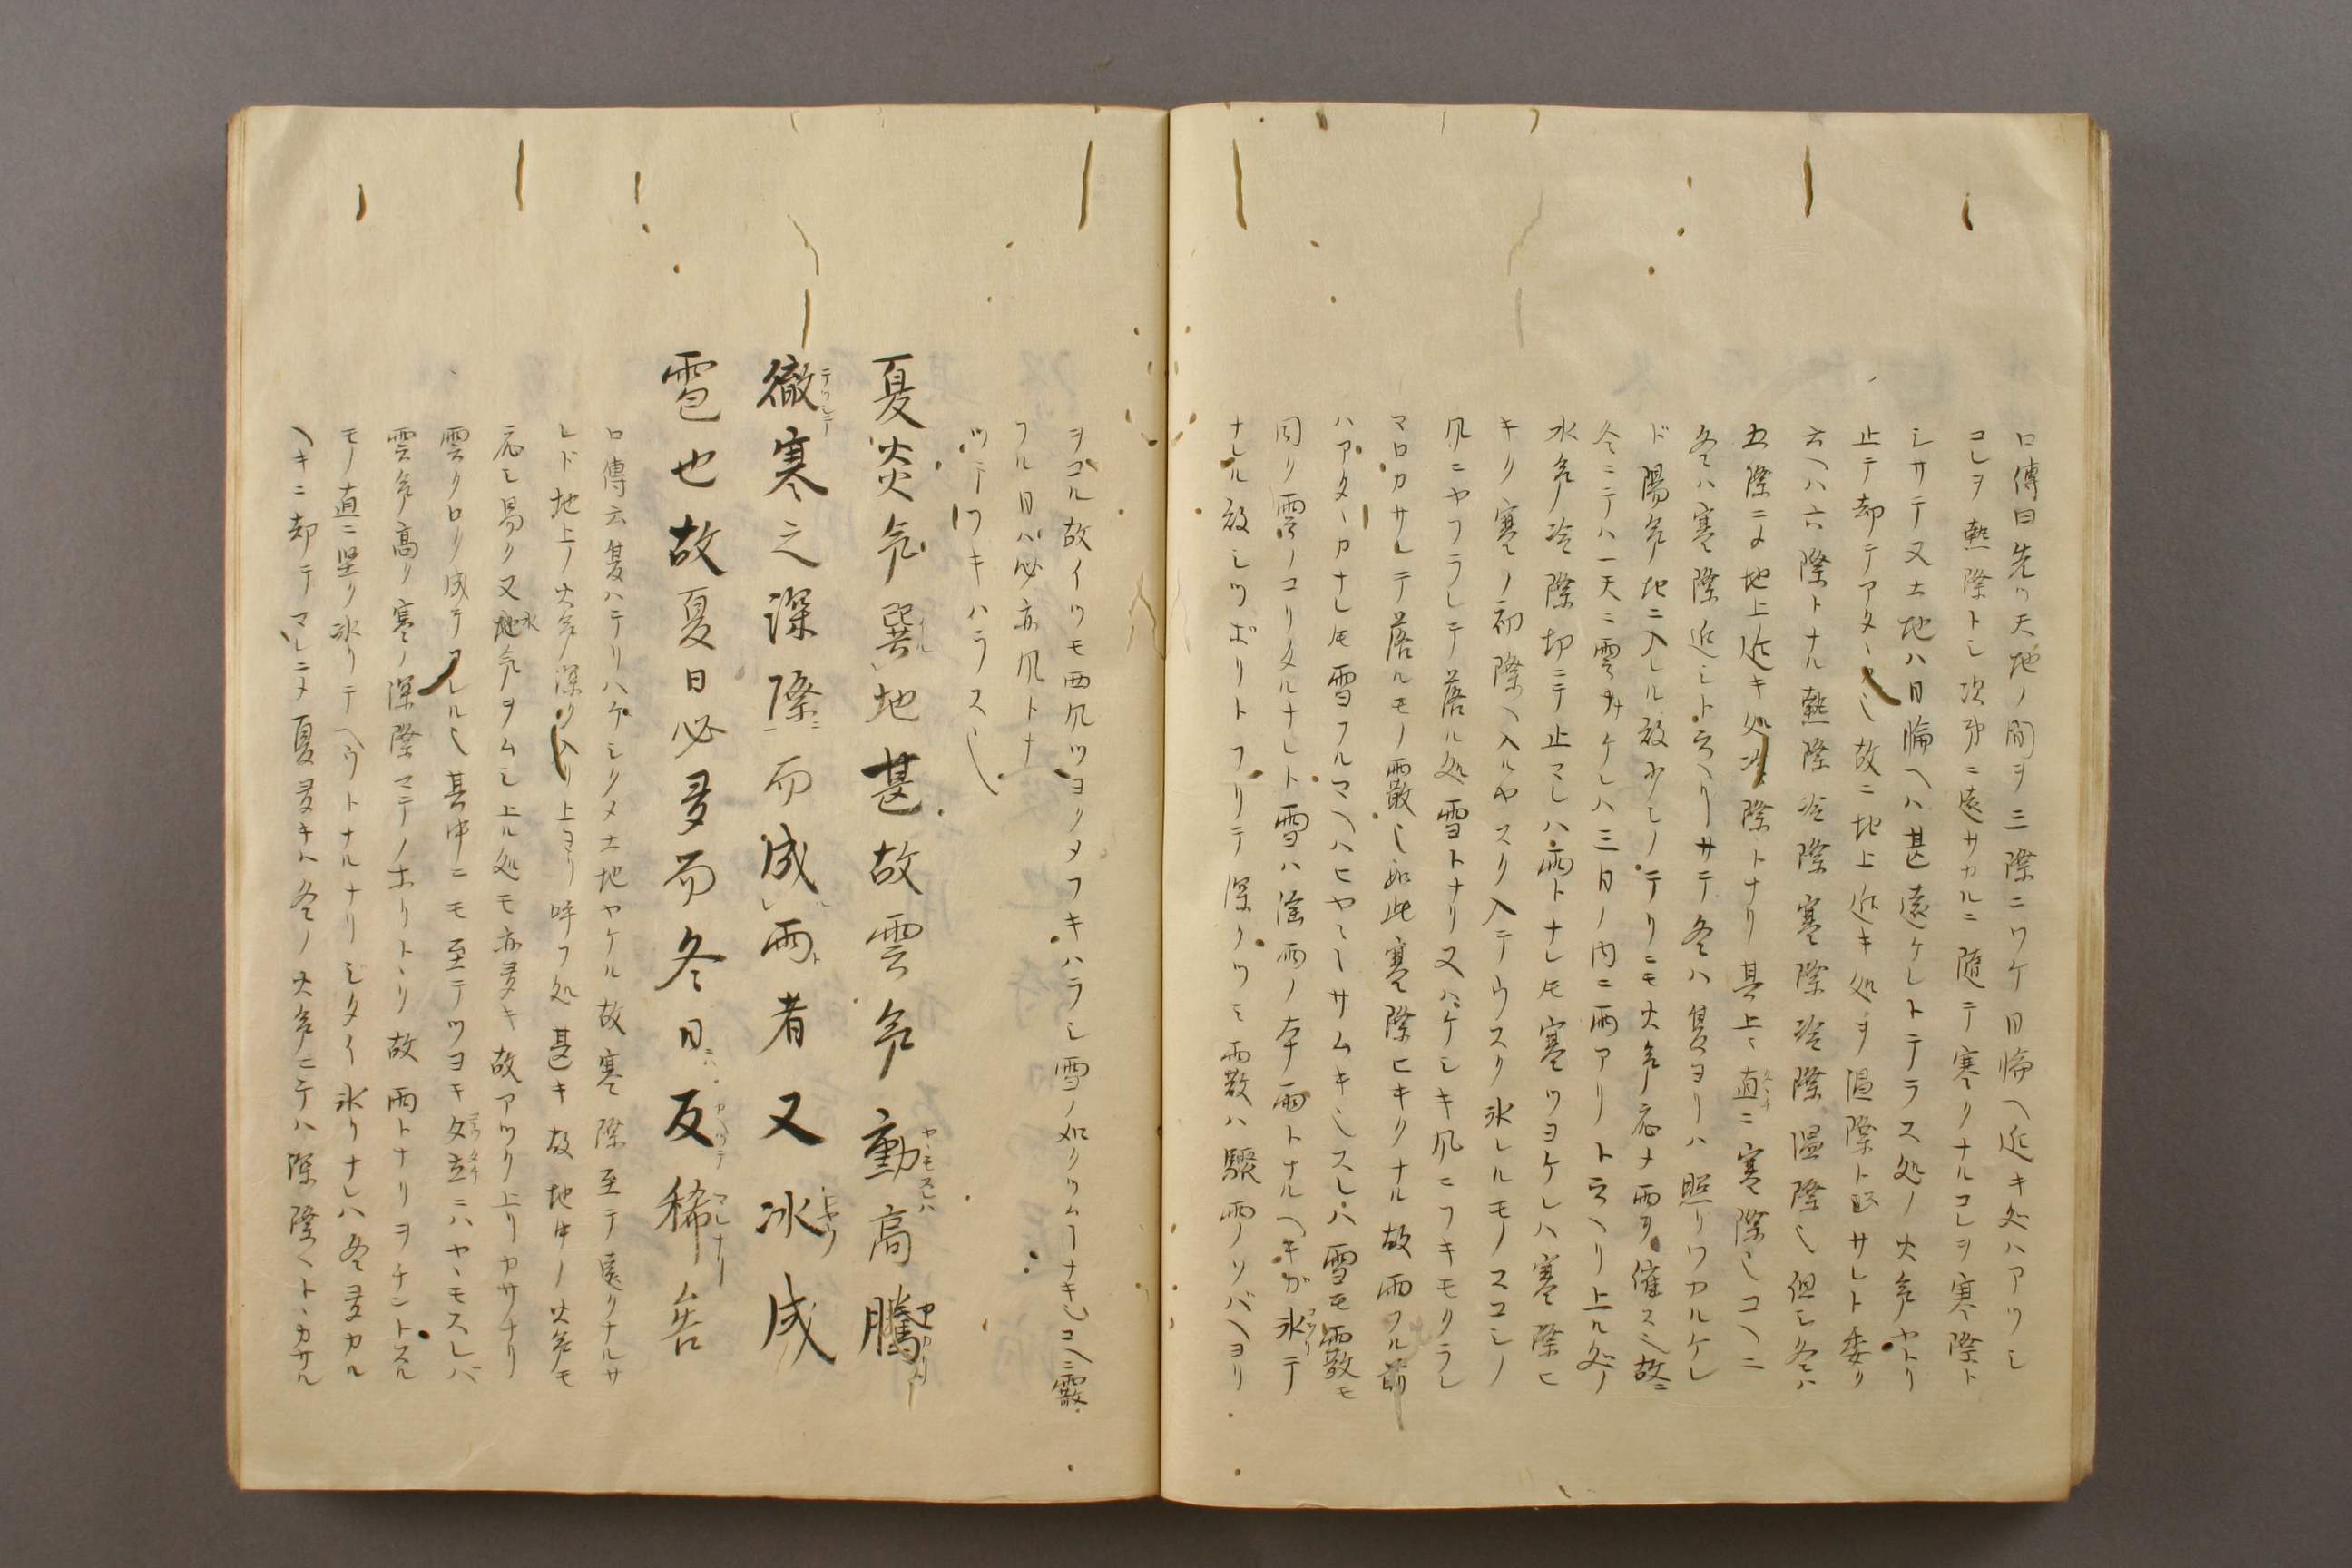 口傳曰先ツ天地ノ間ヲ三際ニワケ日輪ヘ近キ処ハアツシ
コレヲ熱際トシ次第ニ遠サカルニ随テ寒クナルコレヲ寒際ト
シサテ又土地ハ日輪ヘハ甚遠ケレトテラス処ノ火気ヤトリ
止テ却テアタヽカシ故ニ地上近キ処ヲ温際ト サレト委ク
云ヘハ六際トナル熱際冷際寒際冷際温際也但シ冬ハ
五際ニメ地上近キ処冷際トナリ其上ハ直ニ寒際也コヽニ
冬ハ寒際近シト云ヘリサテ冬ハ夏ヨリハ照リワカルケレ
ド陽気地ニ入レル故少シノテリニモ火気応ナ雨ヲ催ス也故ニ
冬ニテハ一天ニ雲ナケレハ三日ノ内ニ雨アリト云ヘリ上ル処ノ
水気冷際切ニテ止マレハ雨トナレ𪜈寒ツヨケレハ寒際ヒ
キク寒ノ初際ヘ入ルヤスク入テウスク氷レルモノスコシノ
風ニヤフラレテ落ル処雪トナリ又ハケシキ風ニフキモクラレ
マロカサレテ落ルモノ霰也如此寒際ヒキクナル故雨フル前
ハアタヽカナレ𪜈雪フルマヘハヒヤヽカサムキ也スレハ雪モ霰モ
同ク雲ノコリタルナレト雪ハ陰雨ノ本雨トナルヘキガ氷テ
ナレル故シツボリトフリテ深クツミ霰ハ驟雨ノソバヘヨリ
ヲコル故イツモ西風ツヨクメフキハラシ雪ノ如クツムーナキ也コヽニ霰
フル日ハ必亦風トナ
ツテワキハラス也
夏炎気巽地甚故雲気動高騰
徹寒之深際而成雨者又氷成
雹也故夏日必多而冬日反稀矣
口傳云夏ハテリハケシクメ土地ヤケル故寒際至テ遠クナルサ
レド地上ノ火気深ク入リ上ヨリ呼フ処甚キ故地中ノ火気モ
応シ易ク又地水気ヲムシ上ル処モ亦多キ故アツク上リカサナリ
雲クロク成テフルル也其中ニモ至テツヨキ夕立ニハヤヽモスレバ
雲気高ク寒ノ深際マテノホリトヽク故雨トナリヲチントスル
モノ直ニ堅ク氷リテヘウトナルナリシタイ氷クナレハ冬多カル
ヘキニ却テマレニメ夏多キハ冬ノ火気ニテハ深際ヘトヽカサル